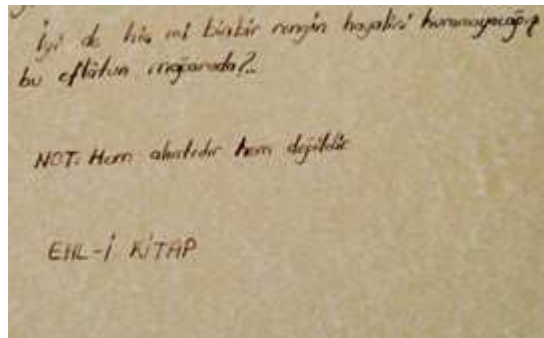 İyi de hiç mi binbir rengin hayalini kuramayacağız
bu eflâtun mağarada?..
NOT: Hem alıntıdır hem değildir
EHL-İ KİTAP